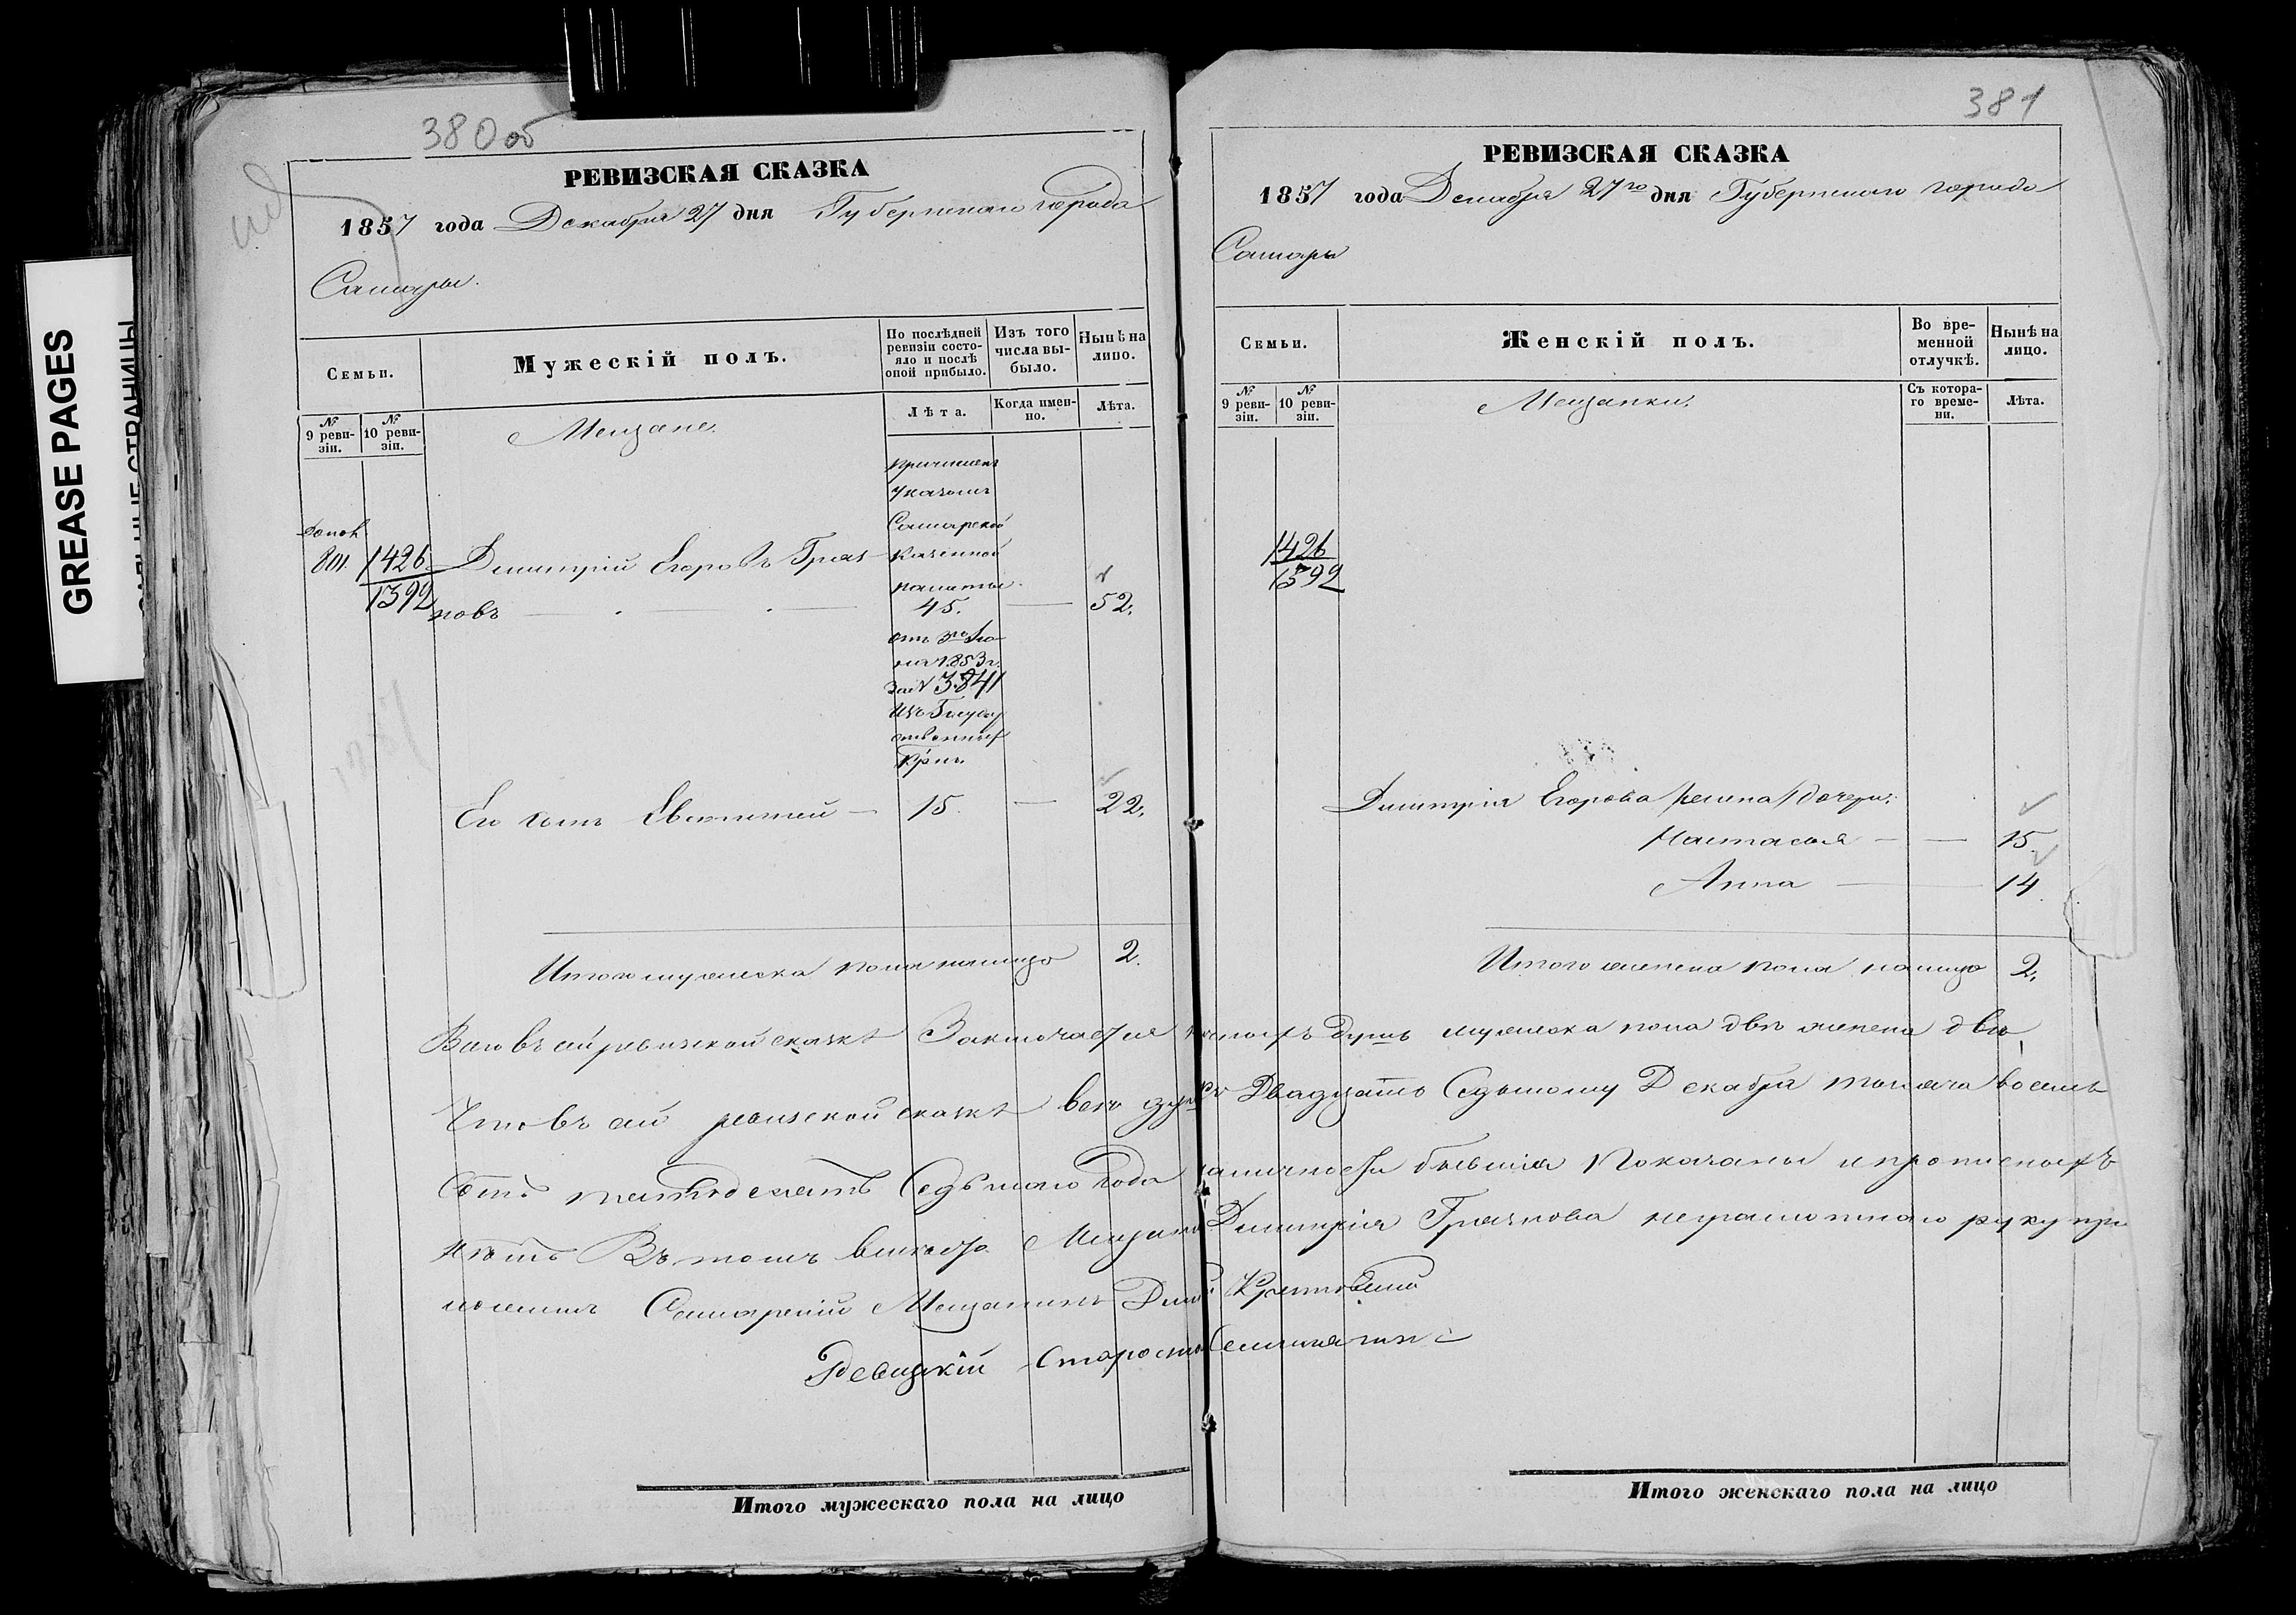 GREASE PAGES
380 об
РЕВИЗСКАЯ СКАЗКА
1857 года Декабря 27 дня Губернскаго города
Самары.
Семьи.
Мужескій полъ.
По послѣдней ревизіи состояло и послѣ оной прибыло.
Изъ того числа выбыло.
Нынѣ на лицо.
№ 9 ревизіи.
№ 10 ревизіи.
Мещане.
Лѣта.
Когда именно.
Лѣта.
причислен
указомъ
Самарской
Казенной
палаты
допол
801. 1426 Димитрій Егоровъ Гряз
1392 новъ 45. 52.
отъ 3го Iю
ля 1853 г.
за № 3841
Изъ Государ
ственных
Крнъ.
Его сынъ Евстигней 15. 22.
Итого мужеска пола налицо 2.
381
РЕВИЗСКАЯ СКАЗКА
1857 года Декабря 27го дня Губернскаго города
Самары
Семьи.
Женскій полъ.
Во временной отлучкѣ.
Нынѣ на лицо.
№ 9 ревизіи.
№ 10 ревизіи.
Мещанки.
Съ котораго времени.
Лѣта.
1426
1392
Димитрія Егорова дочери:
Настасья 15.
Анна 14.
Итого женска пола налицо 2.
Всего въ сей ревизской сказкѣ Заключается душъ мужеска пола двѣ женска двѣ,
Что въ сей ревизской сказкѣ всѣ душъ Двадцать Седьмому Декабря тысяча восемь
сотъ пятьдесятъ Седьмаго Года на личности бывшія Показаны и прописныхъ
нѣтъ Въ томъ вмѣсто Мещанина Димитрія Грязнова неграмотнаго руку при
ложилъ Самарскій Мещанинъ
Ревизкій Староста
Итого мужескаго пола на лицо
Итого женскаго пола на лицо